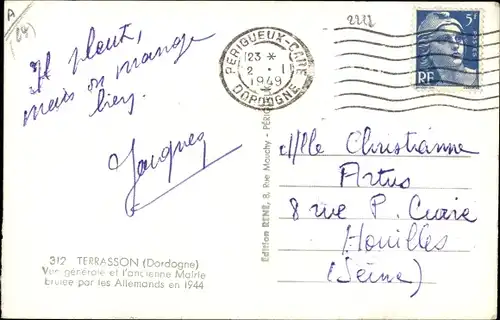 A
(24)
2222
Il pleut,
mais on mange
bien.
Jacques
PÉRIGUEUX-GARE
23 *
2 · 1
1949
DORDOGNE
5F
RF
Mlle Christianne
Artus
8 rue P. Curie
Houilles
(Seine)
Edition RENÉ, 8, Rue Marchy - PÉRIGUEUX
312 TERRASSON (Dordogne)
Vue générale et l'ancienne Mairie
brulée par les Allemands en 1944